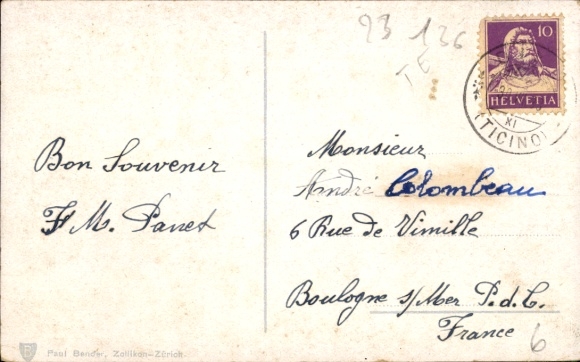 23 136
TE
10
HELVETIA
XI
(TICINO)
Bon Souvenir
F M. Panet
Monsieur
André Colombeau
6 Rue de Vimille
Boulogne s/Mer P.d.C.
France
6
Paul Bender, Zollikon-Zürich.